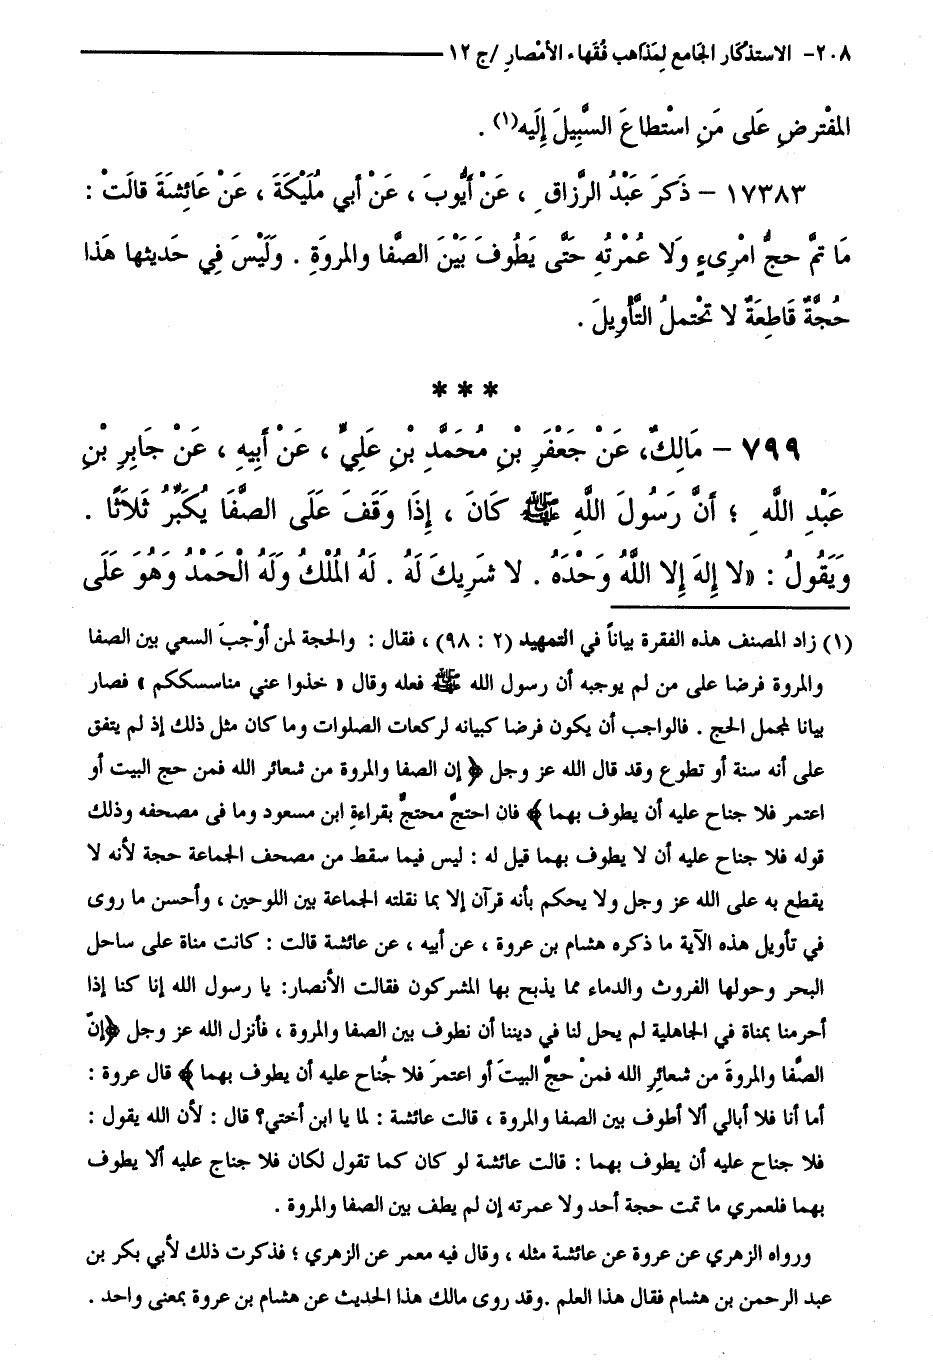 ٢٠٨- الاستذكار الجامع لمذاهب فقهاء الأمصار /ج ١٢
المفترض على من استطاع السبيل إليه(١) .
١٧٣٨٣ – ذكر عبد الرزاق ، عن أيوب ، عن أبي مليكة ، عن عائشة قالت :
ما تم حج امرىء ولا عمرته حتى يطوف بين الصفا والمروة . وليس في حديثها هذا
حجة قاطعة لا تحتمل التأويل .
* * *
٧٩٩ – مالك، عن جعفر بن محمد بن علي ، عن أبيه ، عن جابر بن
عبد الله ؛ أن رسول الله ﷺ كان ، إذا وقف على الصفا يكبر ثلاثا .
ويقول : «لا إله إلا الله وحده . لا شريك له . له الملك وله الحمد وهو على
(١) زاد المصنف هذه الفقرة بياناً في التمهيد (٢ : ٩٨) ، فقال : والحجة لمن أوجب السعي بين الصفا
والمروة فرضا على من لم يوجبه أن رسول الله ﷺ فعله وقال « خذوا عني مناسسككم » فصار
بيانا لمجمل الحج . فالواجب أن يكون فرضا كبيانه لركعات الصلوات وما كان مثل ذلك إذ لم يتفق
على أنه سنة أو تطوع وقد قال الله عز وجل ﴿ إن الصفا والمروة من شعائر الله فمن حج البيت أو
اعتمر فلا جناح عليه أن يطوف بهما ﴾ فان احتجّ محتجّ بقراءةِ ابن مسعود وما فى مصحفه وذلك
قوله فلا جناح عليه أن لا يطوف بهما قيل له : ليس فيما سقط من مصحف الجماعة حجة لأنه لا
يقطع به على الله عز وجل ولا يحكم بأنه قرآن إلا بما نقلته الجماعة بين اللوحين ، وأحسن ما روى
في تأويل هذه الآية ما ذكره هشام بن عروة ، عن أبيه ، عن عائشة قالت : كانت مناة على ساحل
البحر وحولها الفروث والدماء مما يذبح بها المشركون فقالت الأنصار: يا رسول الله إنا كنا إذا
أحرمنا بمناة في الجاهلية لم يحل لنا في ديننا أن نطوف بين الصفا والمروة ، فأنزل الله عز وجل ﴿إنّ
الصَّفا والمروةَ من شعائِر الله فمنْ حجَّ البيتَ أو اعتمرَ فلا جُناح عليه أن يطوف بهما ﴾ قال عروة :
أما أنا فلا أبالي ألا أطوف بين الصفا والمروة ، قالت عائشة : لما يا ابن أختي؟ قال : لأن الله يقول :
فلا جناح عليه أن يطوف بهما : قالت عائشة لو كان كما تقول لكان فلا جناج عليه ألا يطوف
بهما فلعمري ما تمت حجة أحد ولا عمرته إن لم يطف بين الصفا والمروة .
ورواه الزهري عن عروة عن عائشة مثله ، وقال فيه معمر عن الزهري ؛ فذكرت ذلك لأبي بكر بن
عبد الرحمن بن هشام فقال هذا العلم .وقد روى مالك هذا الحديث عن هشام بن عروة بمعنى واحد .